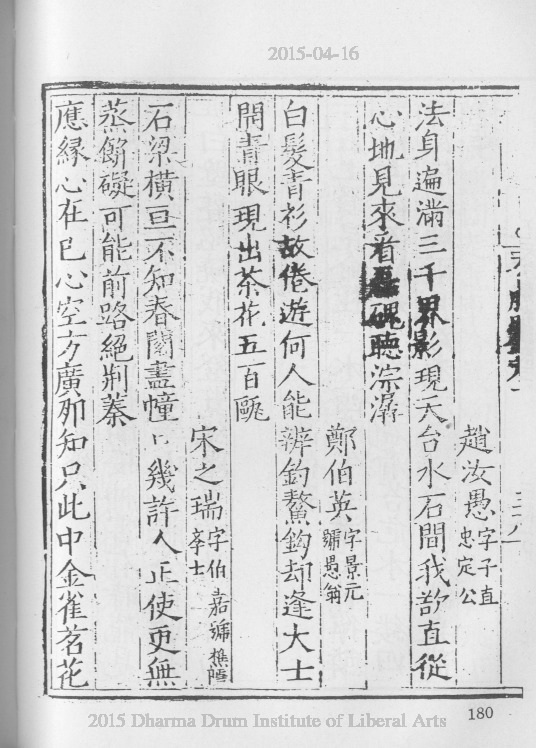 2015-04-16
趙汝愚字子直忠定公
法身遍滿三千界影現天台水石間我欲直從
心地見來看磈聽淙潺
鄭伯英字景元號愚翁
白髮青衫故倦遊何人能辨釣鰲鈎却逢大士
開青眼現出茶花五百甌
宋之瑞字伯嘉號樵隱士
石梁橫亘不知春闌盡幢〻幾許人正使更無
蒸餅礙可能前路絕荆蓁
應緣心在已心空方廣那知只此中金雀茗花
180
2015 Dharma Drum Institute of Liberal Arts